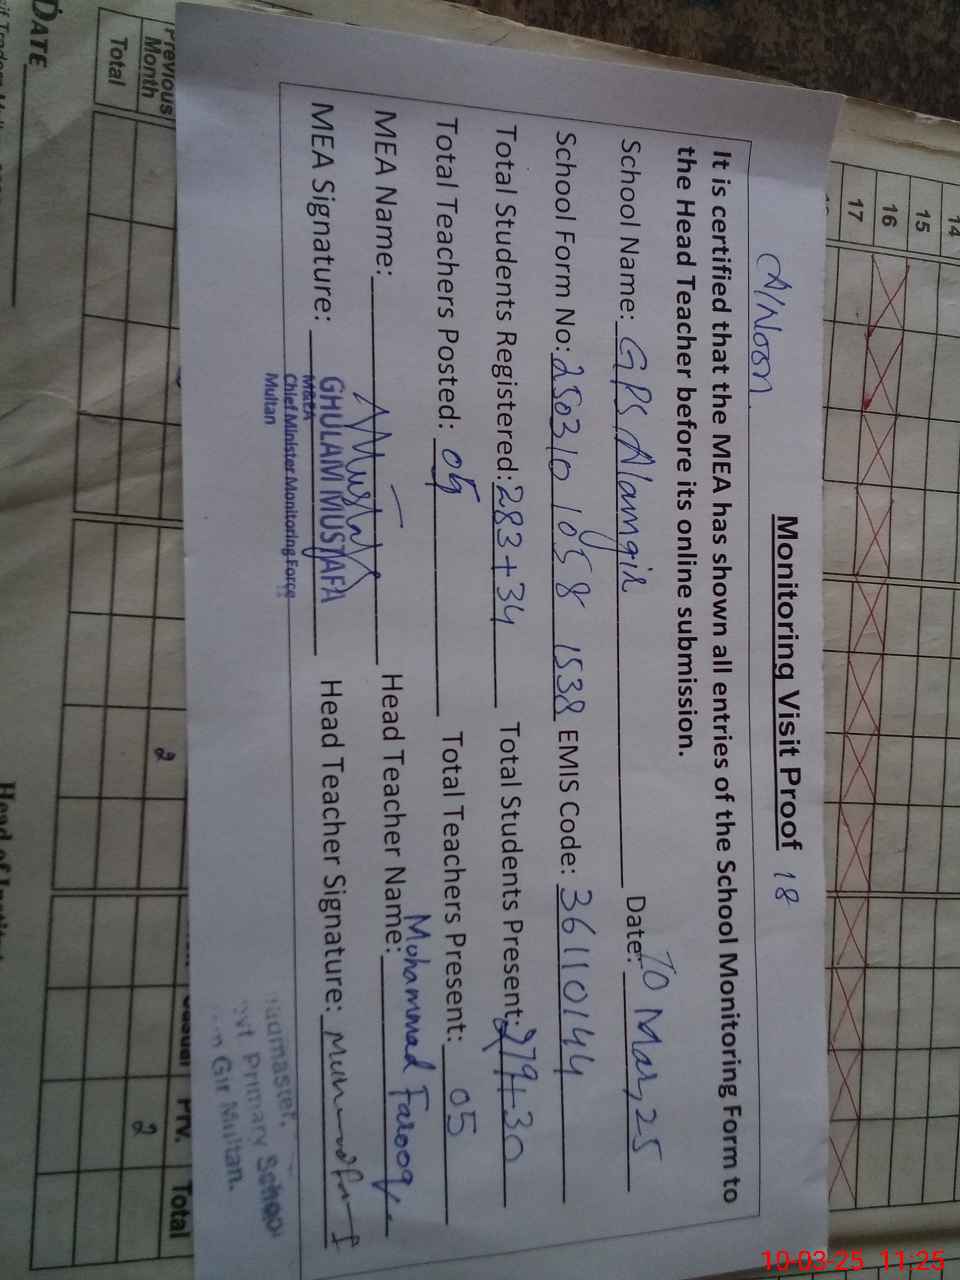 A/Noon.
Monitoring Visit Proof 18
It is certified that the MEA has shown all entries of the School Monitoring Form to
the Head Teacher before its online submission.
School Name: GPS Alamgir Date: 10 Mar, 25
School Form No: 250310 1058 1538 EMIS Code: 36110144
Total Students Registered: 283+34 Total Students Present: 279+30
Total Teachers Posted: 05 Total Teachers Present: 05
MEA Name: Head Teacher Name: Mohammad Farooq
MEA Signature: Head Teacher Signature:
GHULAM MUSTAFA
M&EA
Chief Minister Monitoring Force
Multan
Primary School
Gir Multan.
14
15
16
17
Previous
Month
Total
2
2
Prv. Total
DATE
10-03-25 11:25